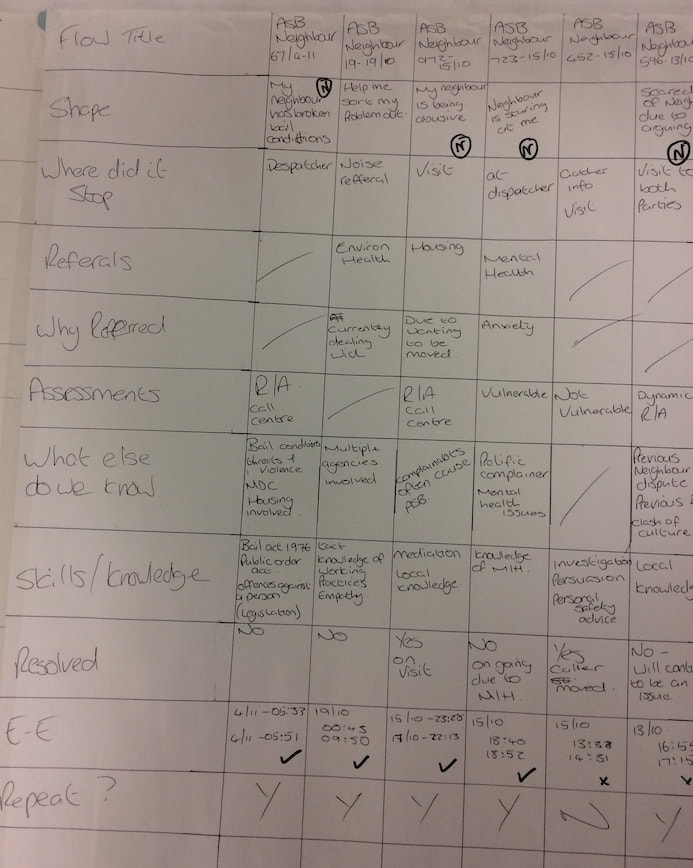 Flow Title
ASB
Neighbour
67/4-11
ASB
Neighbour
19-19/10
ASB
Neighbour
972-
15/10
ASB
Neighbour
723-15/10
ASB
Neighbour
452-15/10
ASB
Neighbour
596-13/10
Shape
My
neighbour
has broken
bail
conditions
N
Help me
sort my
Problem out.
My neighbour
is being
abusive
N
Neighbour
is staring
at me
N
Scared
of Neigh
due to
arguing
N
Where did it
Stop
Despatcher
Noise
refferal
Visit
at
dispatcher
info
Visit
Visit to
both
Parties
Referals
Environ
Health
Housing
Mental
Health
Why Referred
Currently
dealing
with
Due to
wanting
to be
moved.
Anxiety
Assessments
R/A.
Call
centre
R/A
Call
Centre.
Vulnerable
Not
Vulnerable
Dynamic
R/A
What else
do we know
Bail conditions
threats +
violence
MDC
Housing
involved.
Multiple
agencies
involved
complainants
often cause
ASB.
Prolific
complainer
Mental
health
issues
Previous
Neighbour
dispute
Previous
clash of
culture
Skills/knowledge
Bail act 1976
Public order
offences against
a person
(Legislation)
knowledge of
working
Practices
Empathy.
mediation
Local
knowledge
knowledge
of M/H.
Investigation
Persuasion
Personal
safety
advice
Local
knowledg
Resolved
No
No
Yes
on
Visit
No
on going
due to
M/H.
Yes
Caller
moved.
No -
Will cont
to be an
issue.
E-E
4/11 - 05:33
4/11 - 05:51
19/10
00:45
09:50
15/10 - 23:20
17/10 - 22:13
15/10
18:40
18:52
15/10
13:38
14:31
13/10
16:55
17:15
Repeat ?
Y
Y
Y
Y
N
Y